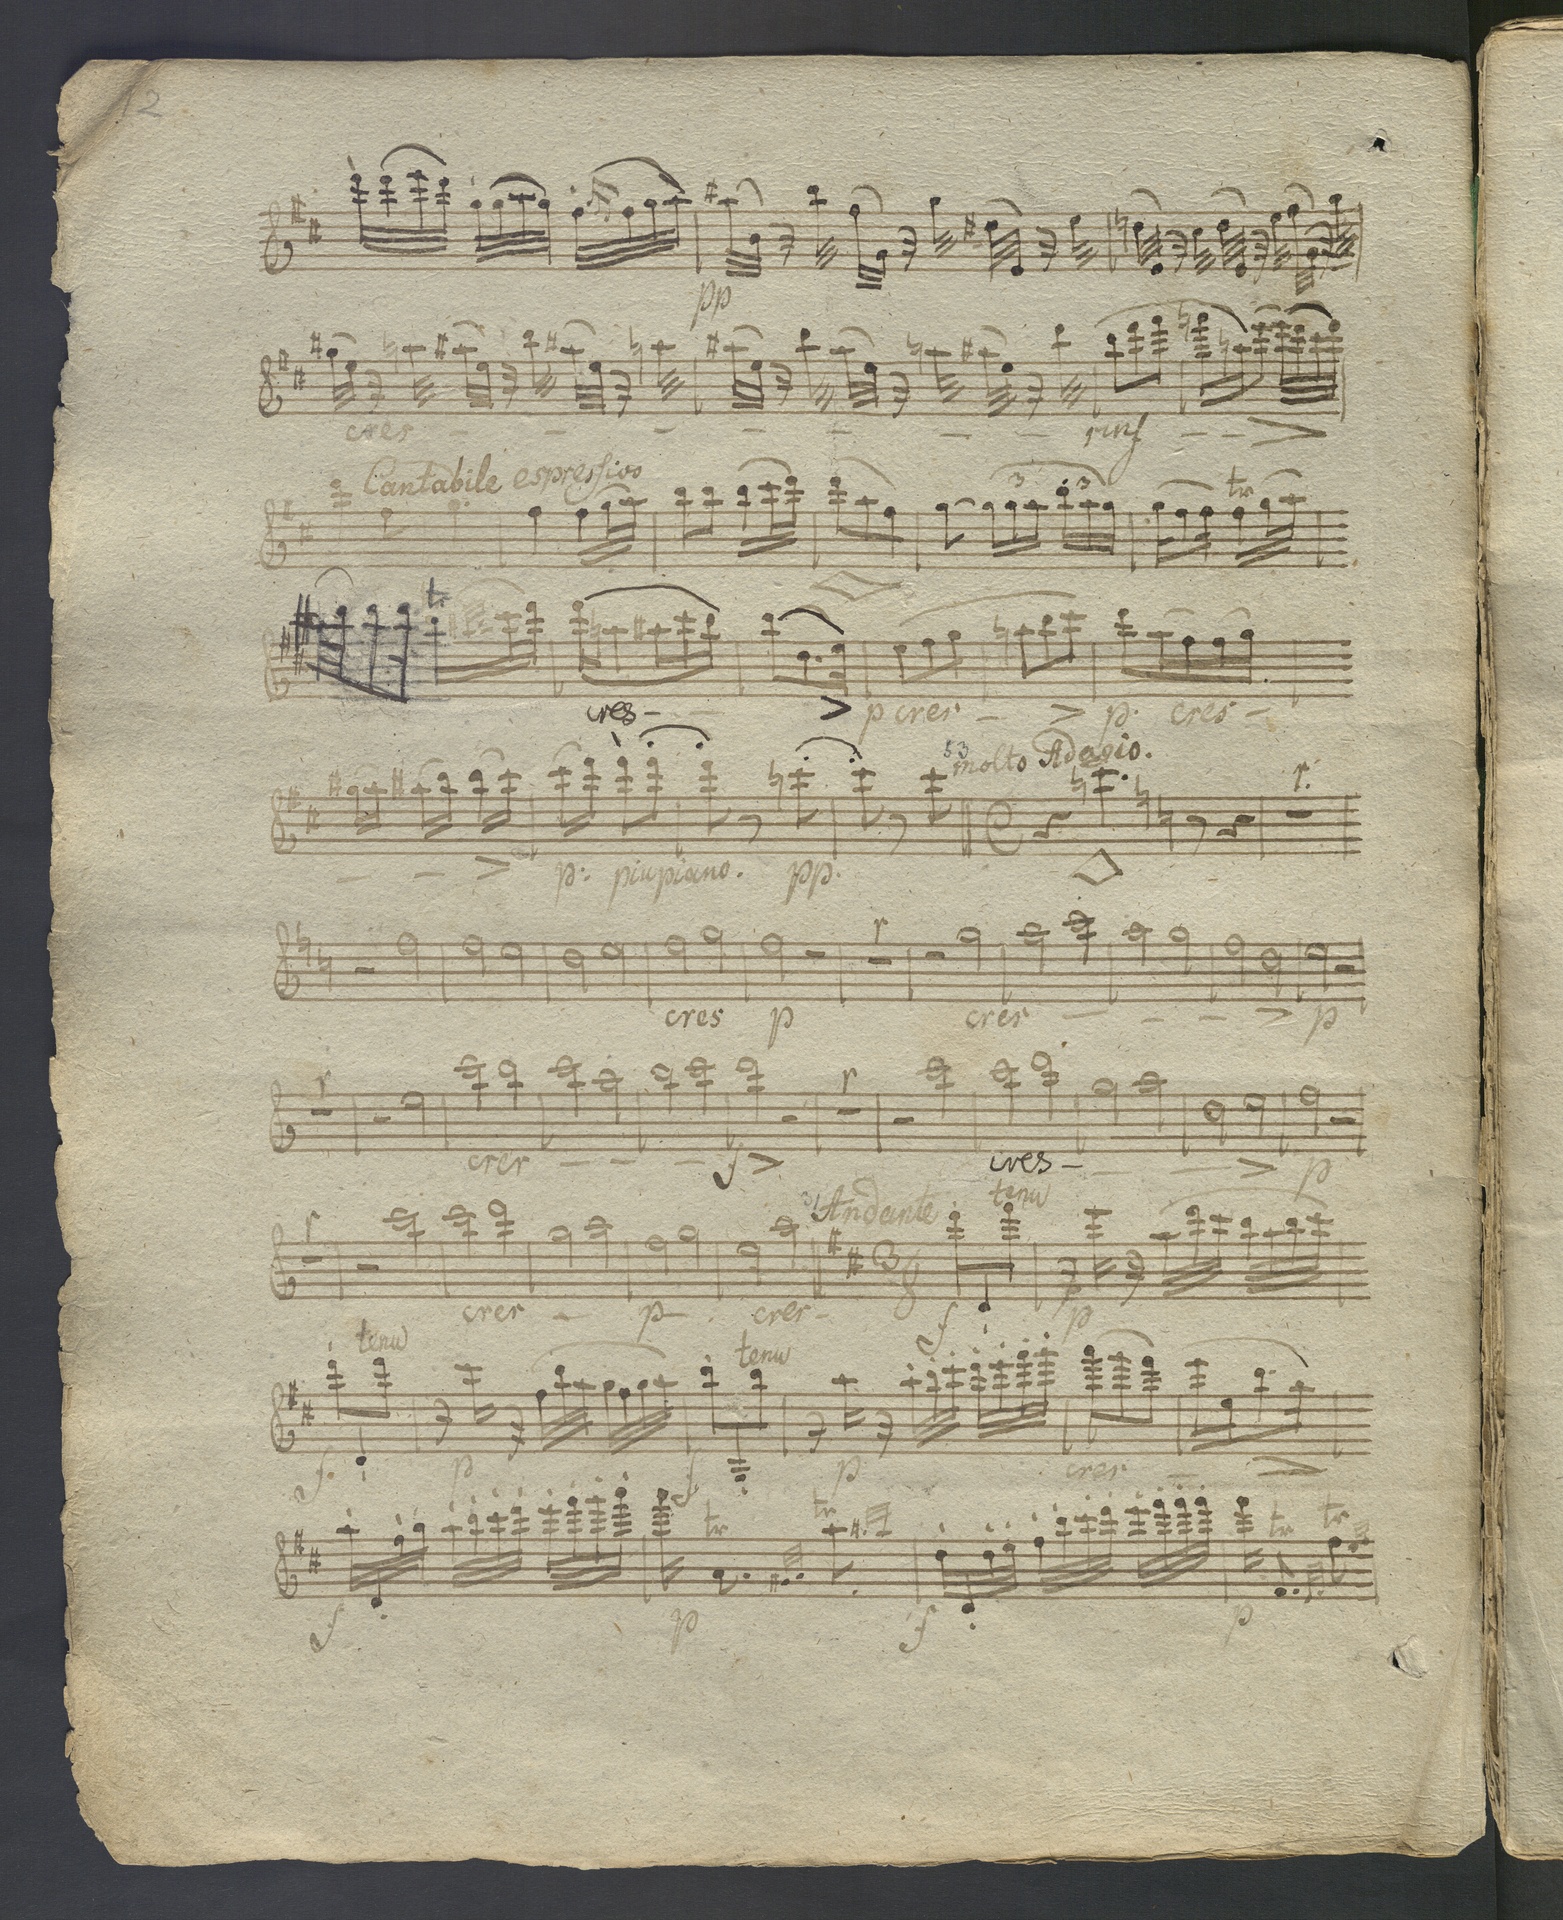 12
pp
cres rinf
Cantabile espressivo
3 3 tr
tr
cres p cres p. cres
53 molto Adagio. r.
p: piu piano. pp.
r
cres p cres p
r r
cres f cres p
r Andante tenu
cres p cres f p
tenu tenu
f. p f p cres
tr tr tr tr
f p f p